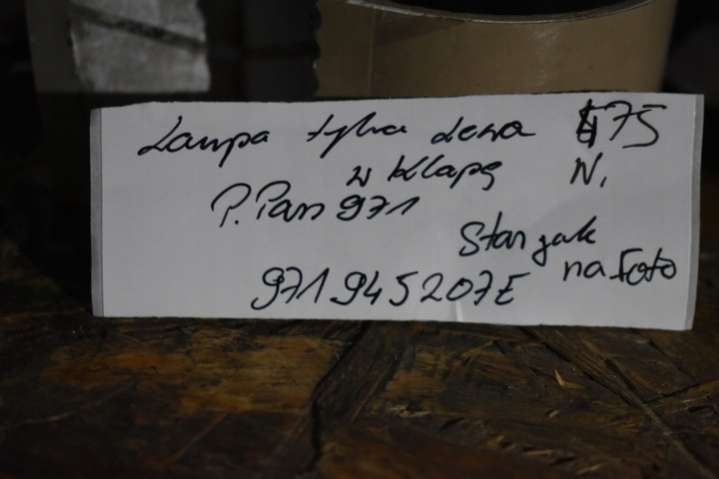 Lampa tylna lewa 475
w klapę N.
P. Pan 971
Stan jak
na foto
971945207E